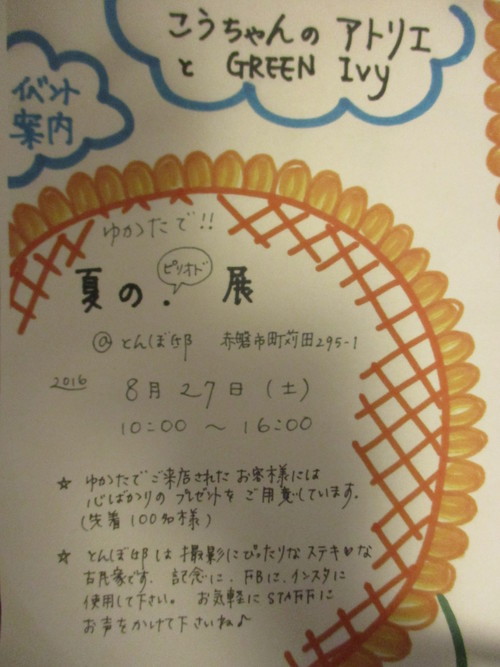 こうちゃんの アトリエ
と GREEN Ivy
イベント
案内
ゆかたで!!
ピリオド
夏の . 展
@とんぼ邸 赤磐市町苅田295-1
2016
8月27日(土)
10:00 ~ 16:00
☆ ゆかたでご来店されたお客様には
心ばかりの プレゼントを ご用意しています.
(先着 100名様)
☆ とんぼ邸は 撮影にぴったりな ステキ♥な
古民家です. 記念に. FBに. インスタに
使用して下さい。 お気軽に STAFFに
お声をかけて下さいね♪